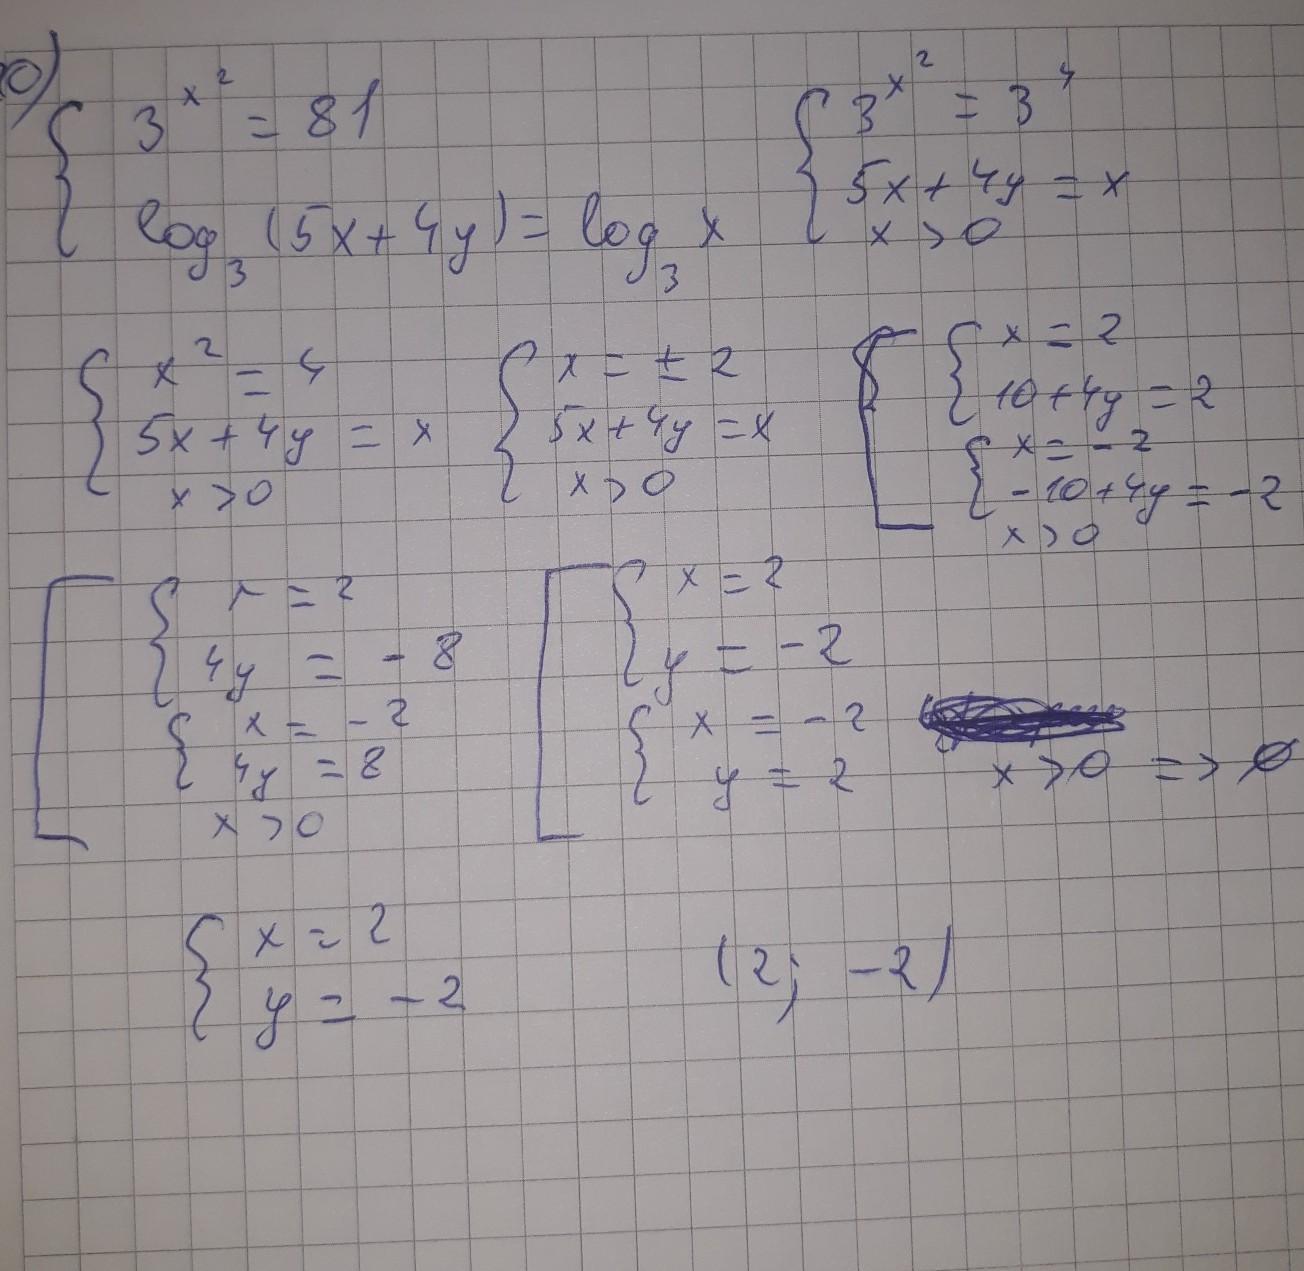 0)
3^{x^2} = 81
log_3 (5x + 4y) = log_3 x
3^{x^2} = 3^4
5x + 4y = x
x > 0
x^2 = 4
5x + 4y = x
x > 0
x = ± 2
5x + 4y = x
x > 0
x = 2
10 + 4y = 2
x = - 2
- 10 + 4y = - 2
x > 0
x = 2
4y = - 8
x = - 2
4y = 8
x > 0
x = 2
y = - 2
x = - 2
y = 2
x > 0 => ∅
x = 2
y = - 2
(2; -2)